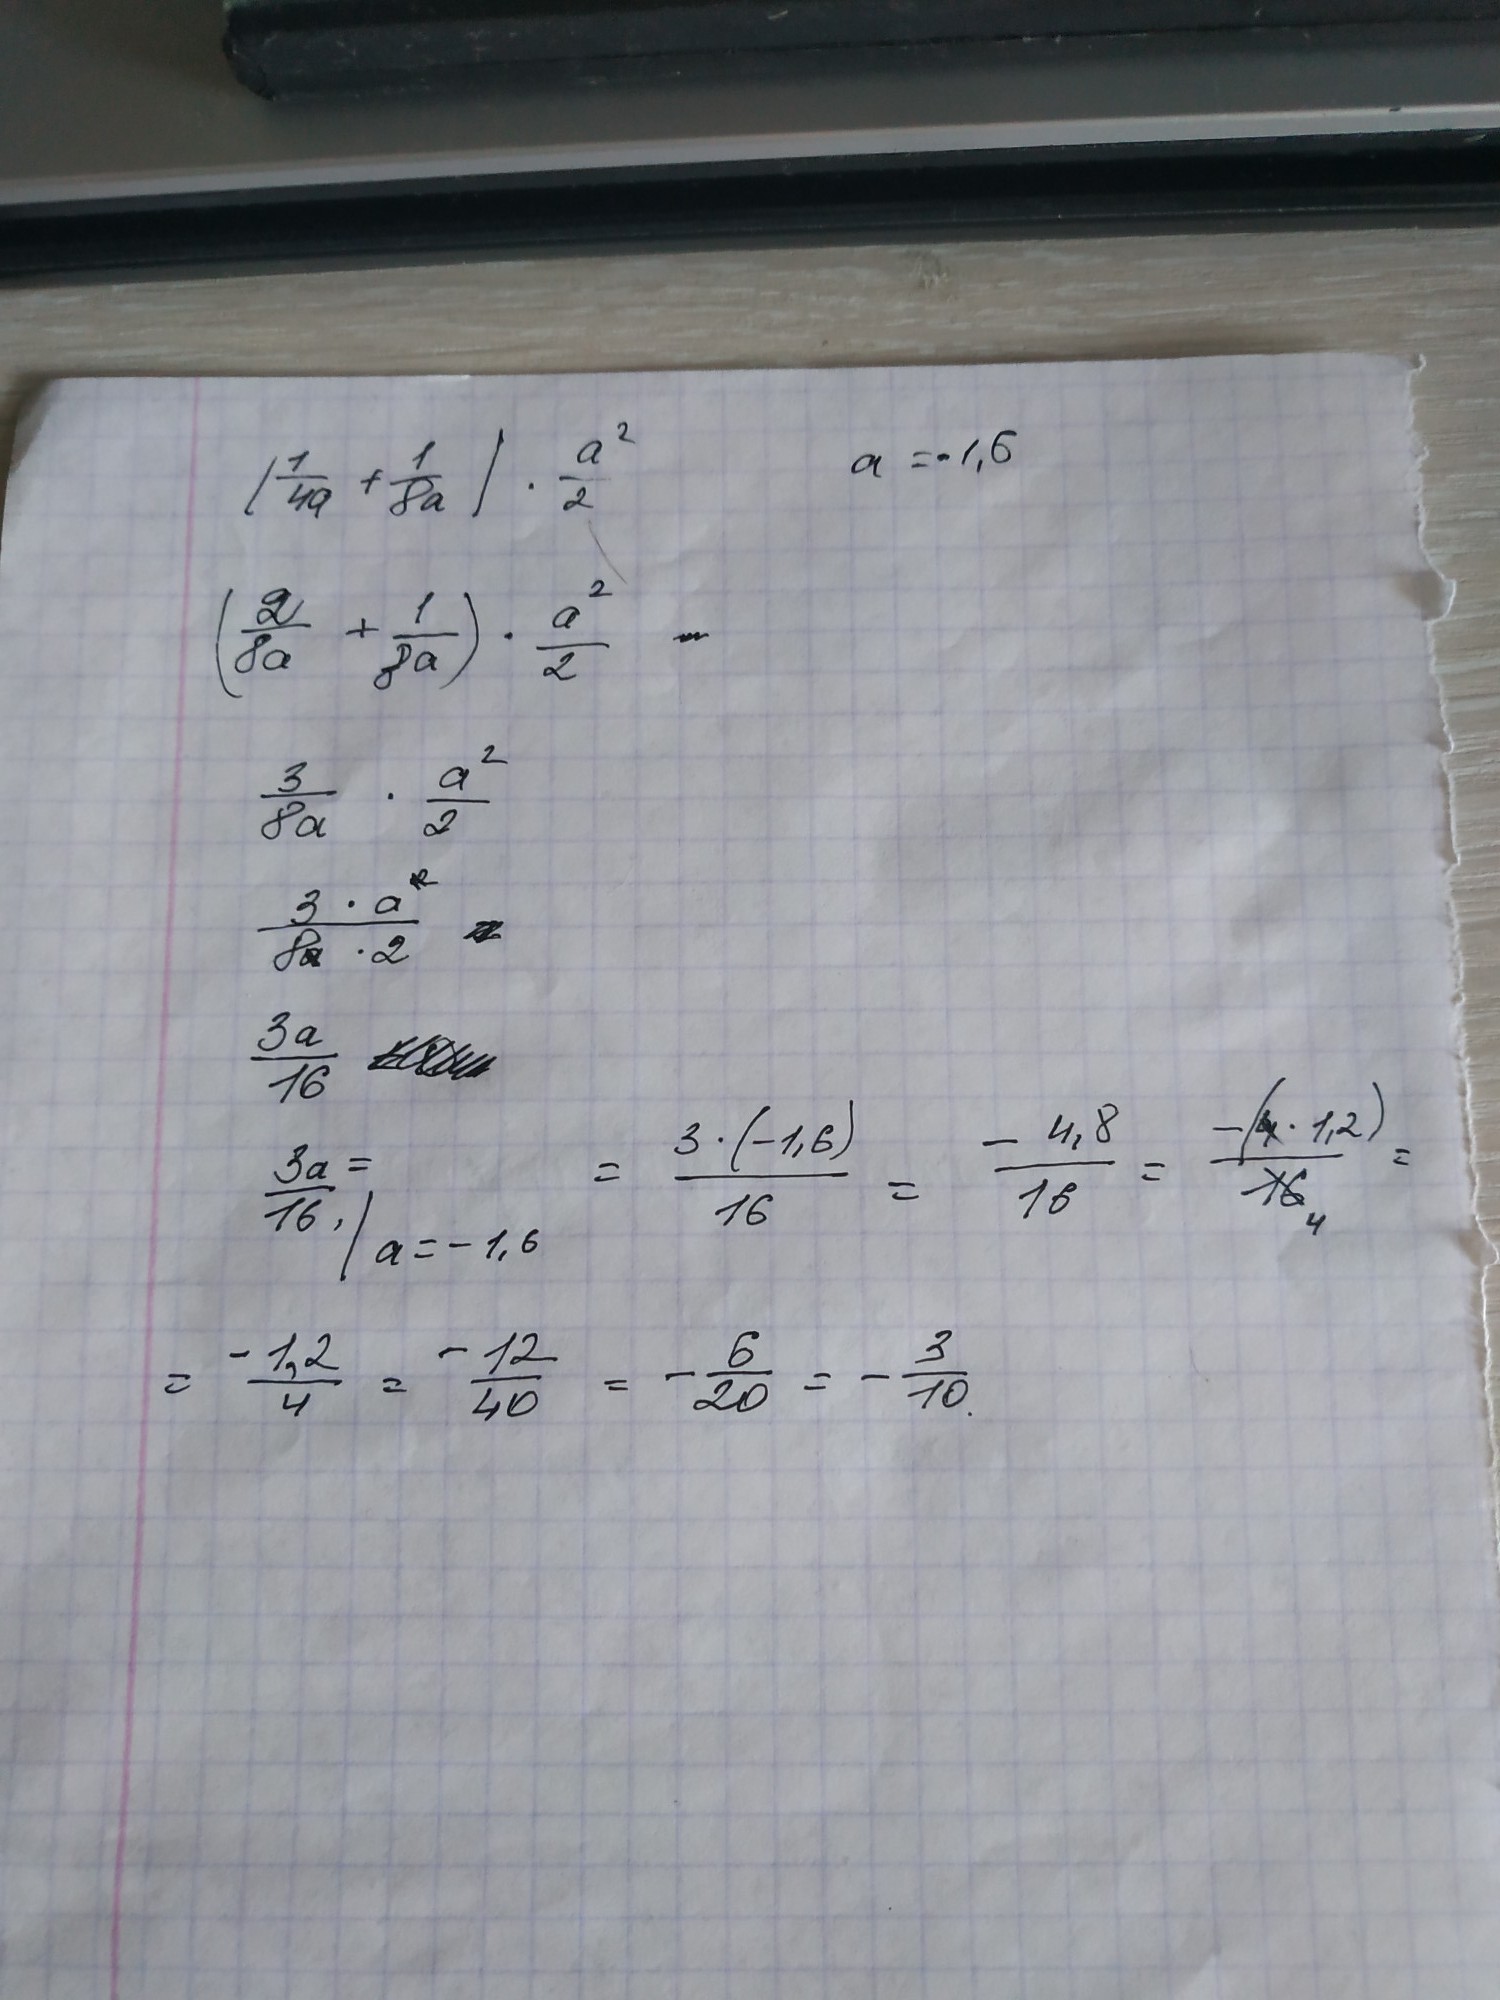 (1/4a + 1/8a) · a²/2 a = -1,6
(2/8a + 1/8a) · a²/2 -
3/8a · a²/2
3 · a²/8a · 2
3a/16
3a/16 / a = -1,6 = 3 · (-1,6)/16 = - 4,8/16 = -(4 · 1,2)/16 4 =
= -1,2/4 = -12/40 = -6/20 = -3/10.